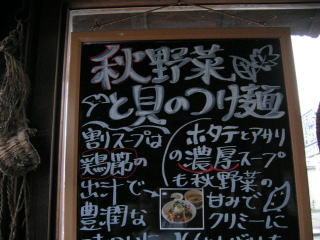 秋野菜
と貝のつけ麺
割スープは
鶏廃の
出汁で、
豊潤な
ホタテとアサリ
の濃厚スープ
も秋野菜の
甘みで
クリミーに